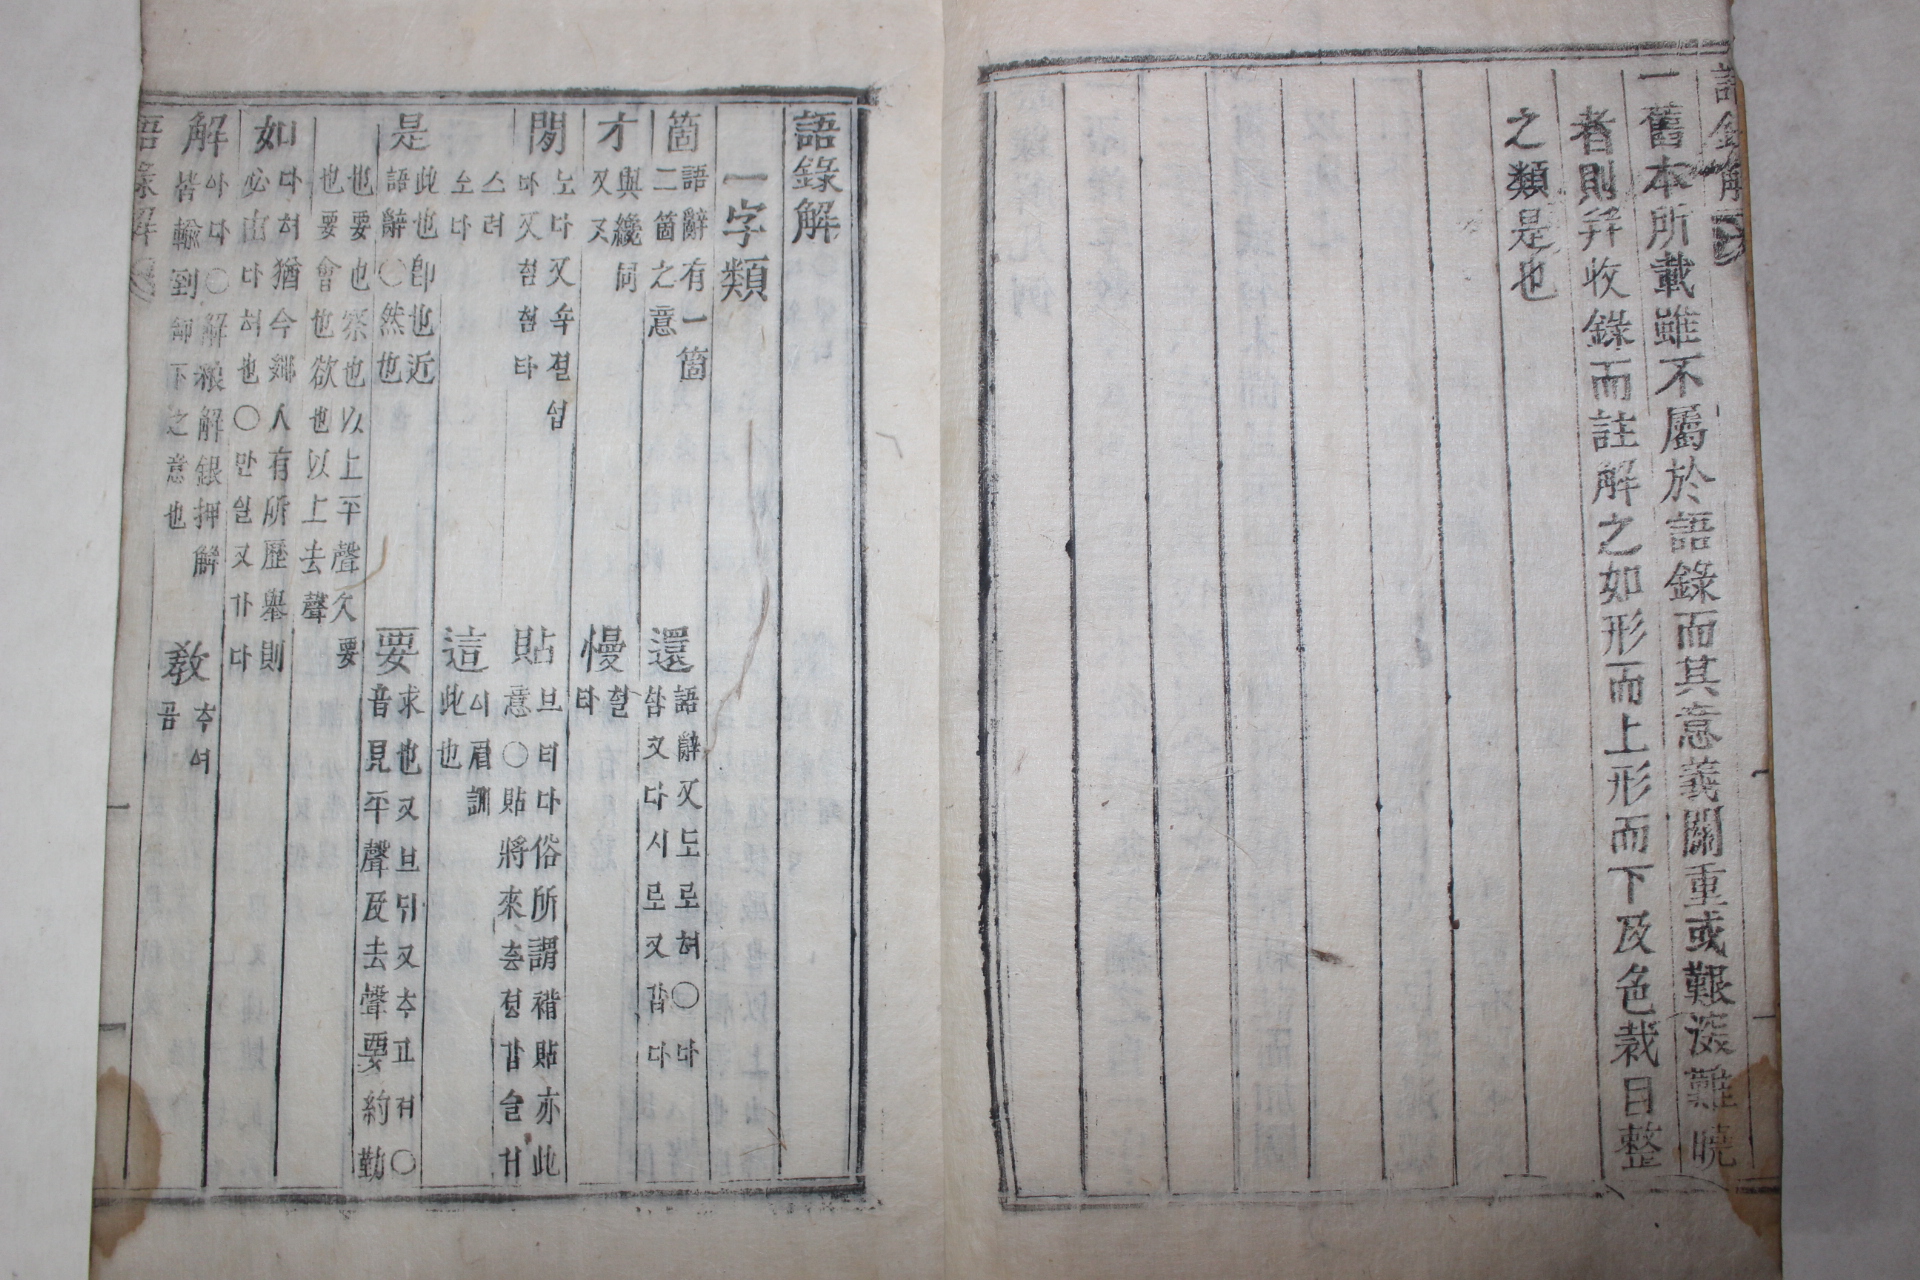 語錄解
一舊本所載雖不屬於語錄而其意義關重或艱澁難曉
者則幷收錄而註解之如形而上形而下及色裁目整
之類是也
語錄解
一字類
箇 語辭有一箇
二箇之意
還 語辭又도로혀○다
함又다시로又갑다
才 與纔同
又
慢 헐
타
閒 노다又쇽졀업
다又힘힘타
貼 브티다俗所謂褙貼亦此
意○貼將來흥졍갑슬거
스러
소다
這 이眉訓
此也
是 此也卽也近
語辭○然也
要 求也又브뒤又추고져○
音見平聲及去聲要約勤
也要也察也以上平聲久要
也要會也欲也以上去聲
如 다혀猶今鄕人有所歷擧則
必曰다혀也○만일又가다
解 아다○解粮解銀押解
皆輸到卸下之意也
敎 추여
곰
語錄解